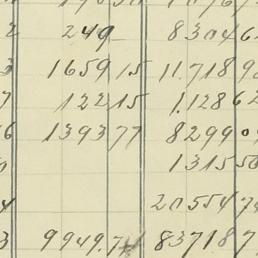 2 249 — 8304 62
3 1659 15 11.718 9
7 122 15 1.128 62
6 1393 77 8299 0
1315 50
20554 7
3 9949.7 83718 7